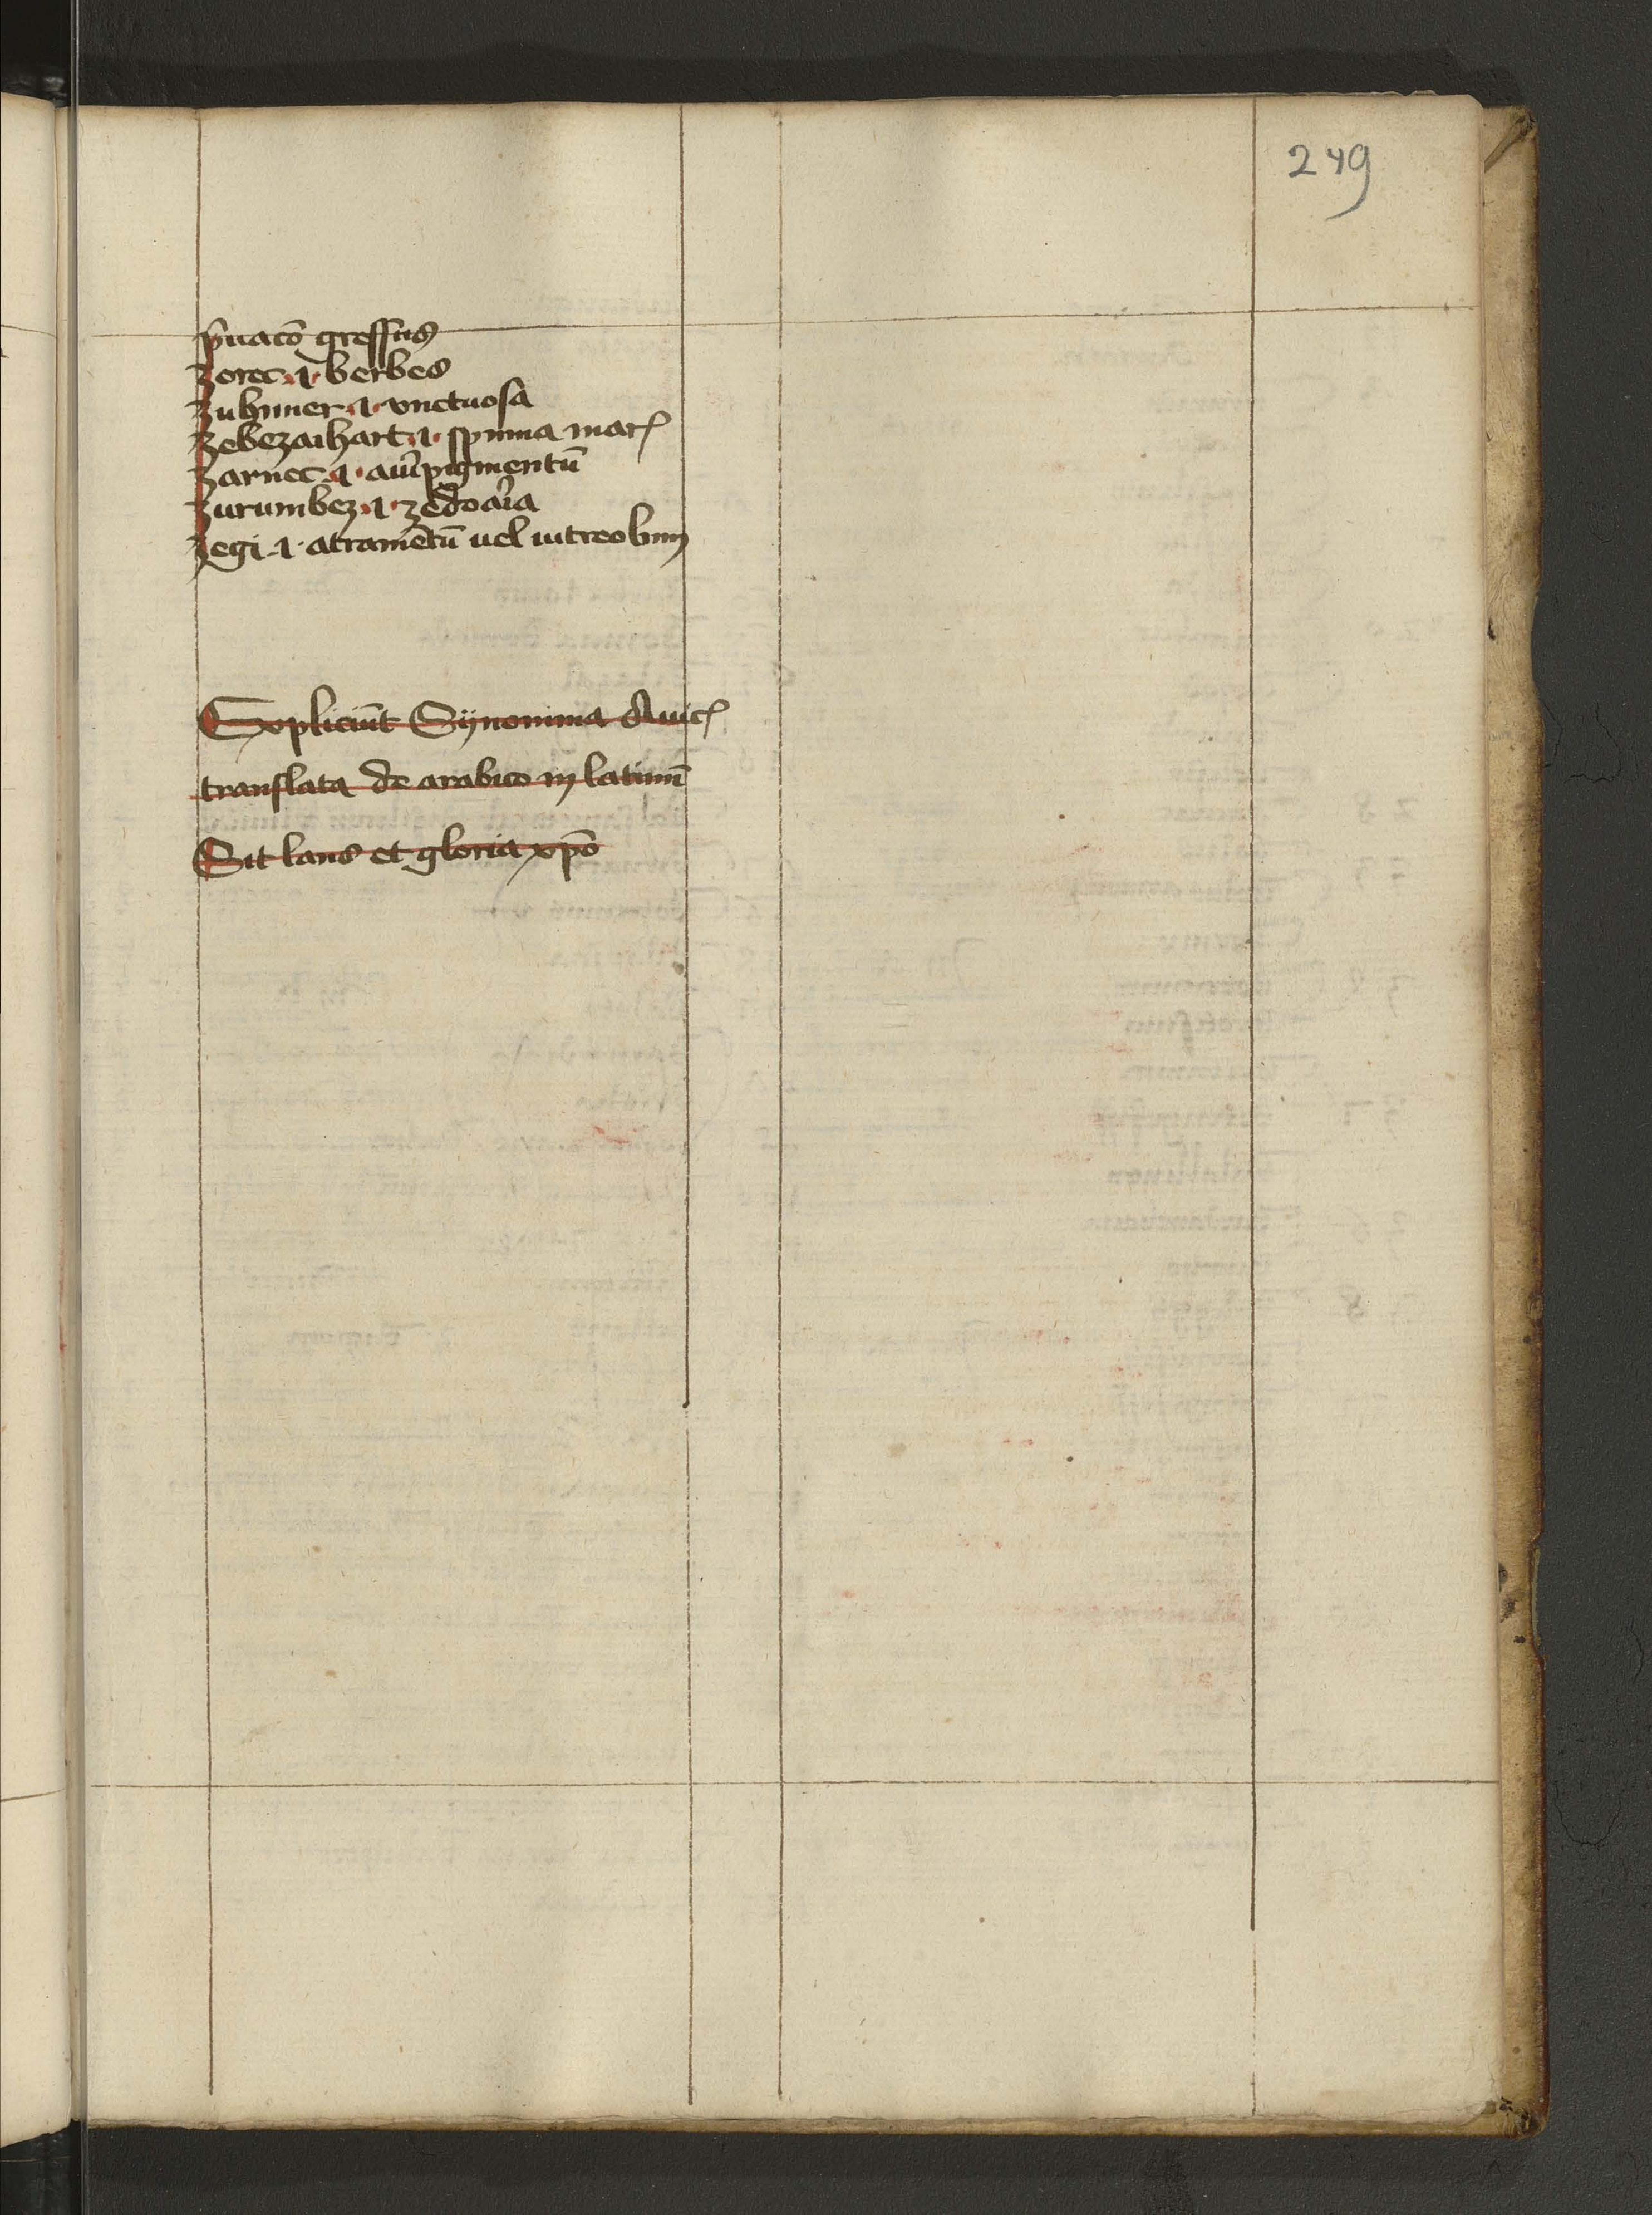 249
p̃uacō gressus
zerec .i. berbes
zubimer .i. vnctuosa
zebezaihart .i. spuma mar̄
zarnec .i. aur̄ipigmentū
zurumbez .i. zedoar̄ia
zegi .i. atramētū uel uitreolum
Expliciūt Synonima Auic̄
translata de arabico in latinū
Sit laus et gloria xp̄o